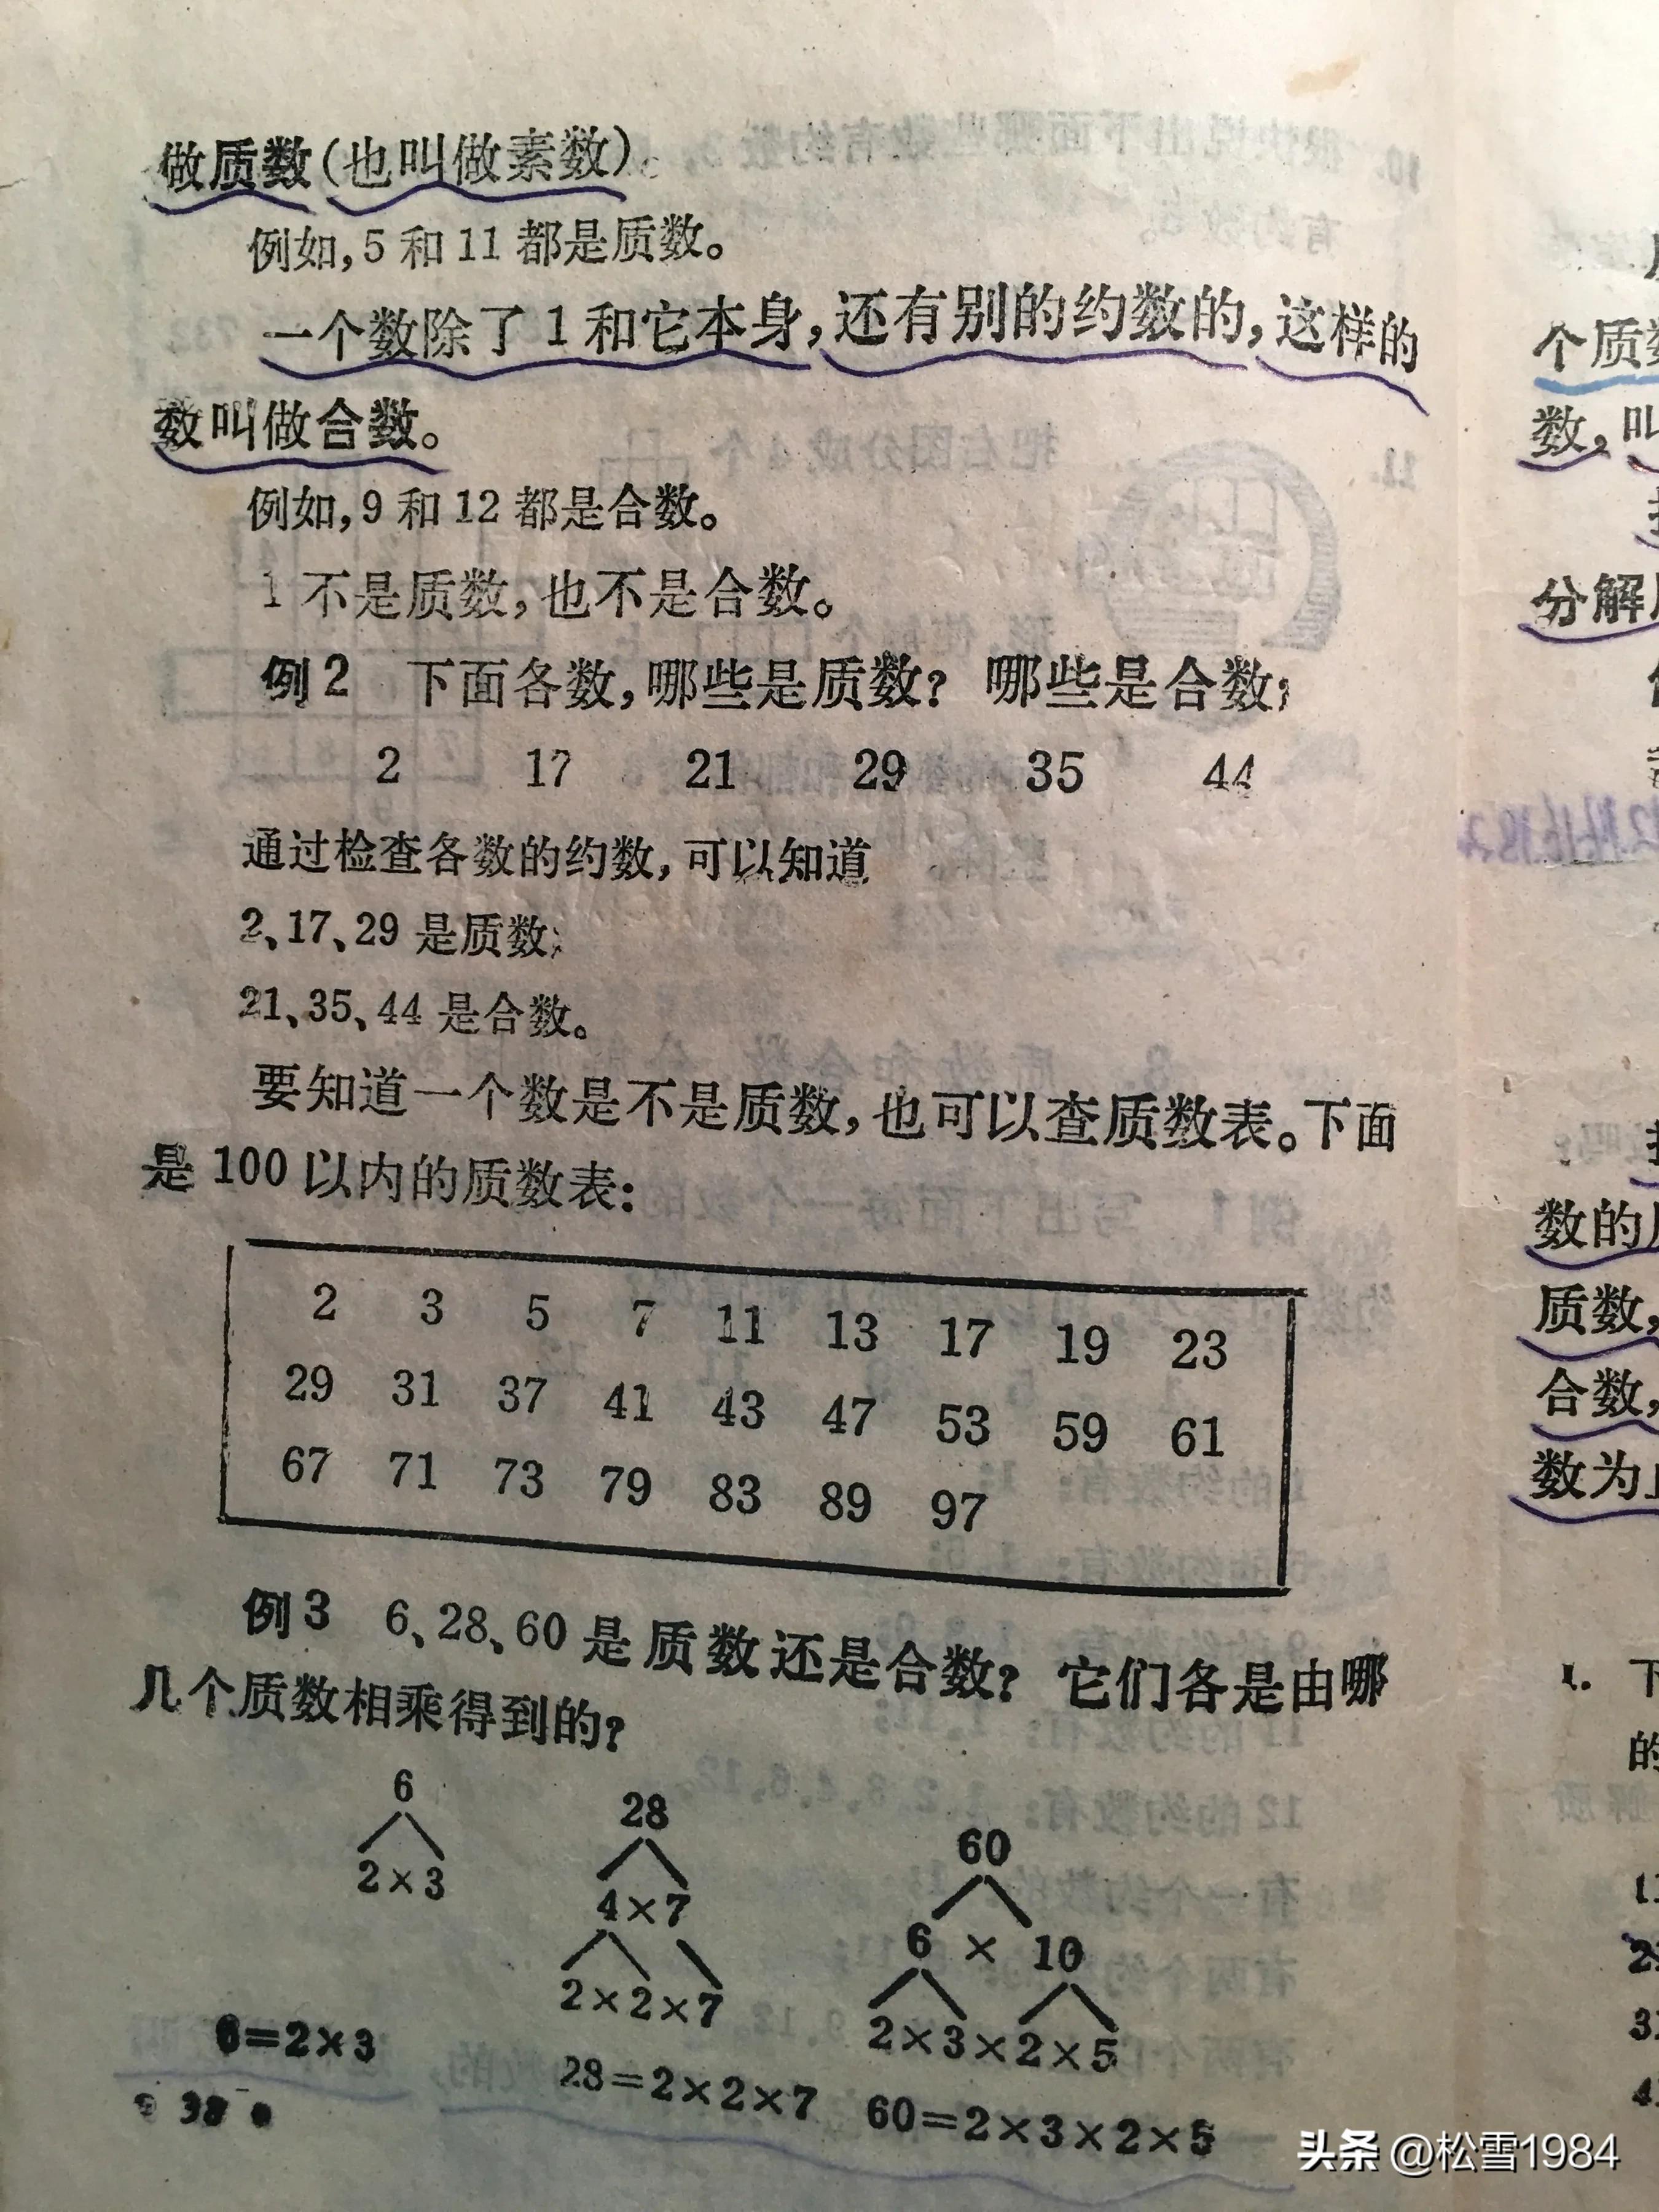 做质数(也叫做素数)。
例如,5 和 11 都是质数。
一个数除了 1 和它本身,还有别的约数的,这样的
数叫做合数。
例如,9 和 12 都是合数。
1 不是质数,也不是合数。
例2 下面各数,哪些是质数? 哪些是合数?
2 17 21 29 35 44
通过检查各数的约数,可以知道
2、17、29 是质数;
21、35、44 是合数。
要知道一个数是不是质数,也可以查质数表。下面
是 100 以内的质数表:
2 3 5 7 11 13 17 19 23
29 31 37 41 43 47 53 59 61
67 71 73 79 83 89 97
例3 6、28、60 是质数还是合数? 它们各是由哪
几个质数相乘得到的?
6 28 60
2×3 4×7 6 × 10
2×2×7 2×3×2×5
6=2×3 28=2×2×7 60=2×3×2×5
38
个质
数,叫
分解
数的
质数,
合数,
数为
1. 下
的
头条 @松雪1984